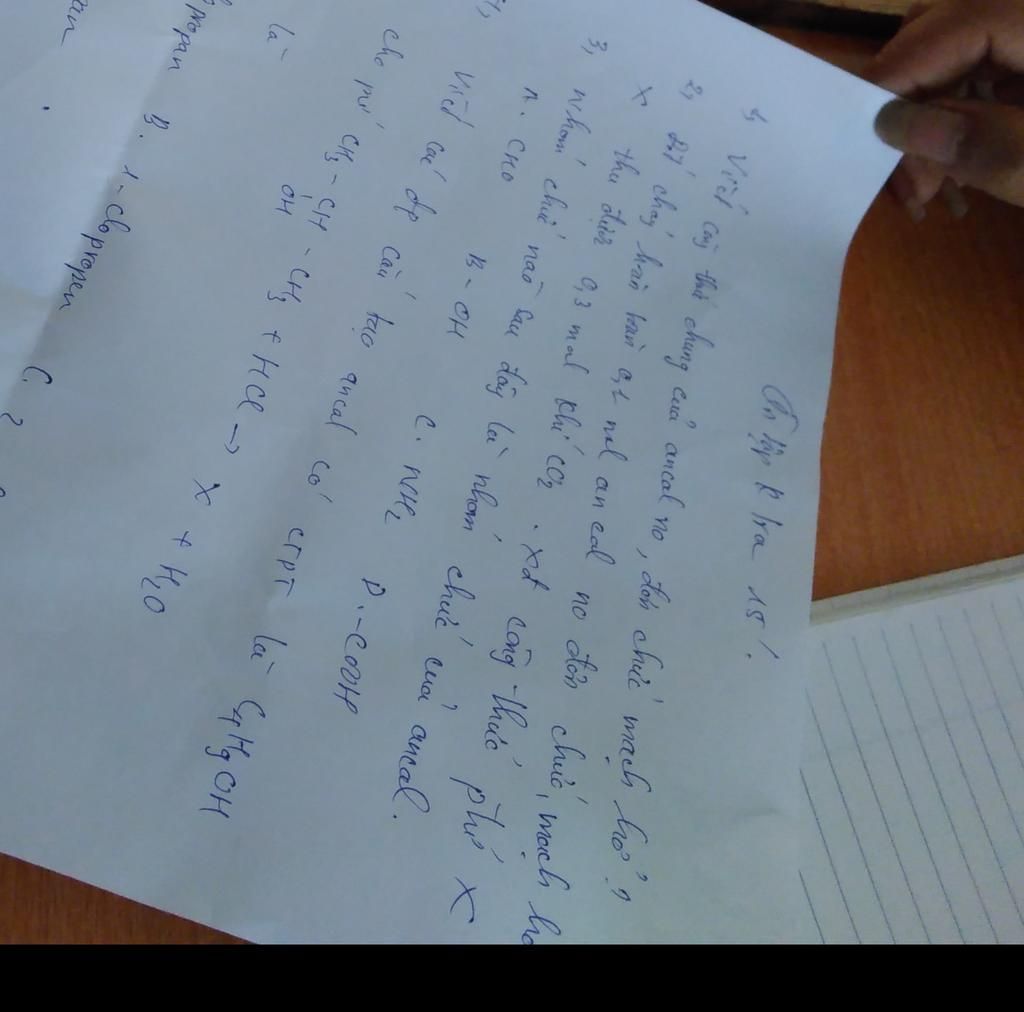 Ôn tập k tra 15'.
1, Viết công thức chung của ancol no, đơn chức mạch hở?
2, Đốt cháy hoàn toàn 0,1 mol ancol no đơn chức, mạch hở
X thu được 0,3 mol khí CO2. Xđ công thức ptử X
3, Nhóm chức nào sau đây là nhóm chức của ancol.
A. CHO B - OH C. NH2 D. -COOH
Viết các đp cấu tạo ancol có CTPT là C4H9OH
cho pứ CH3 - CH - CH3 + HCl → X + H2O
OH
là
B. 1-Clopropen C. 2